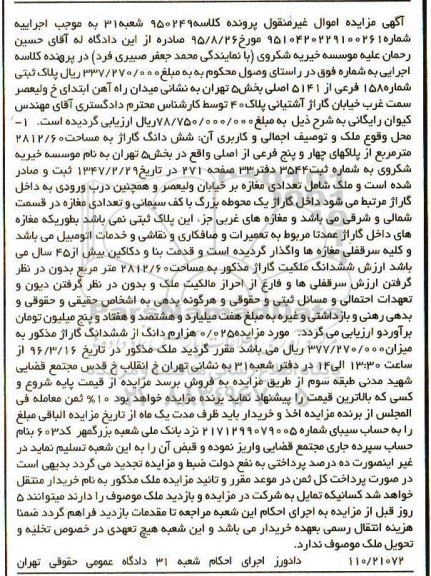 آگهی مزایده اموال غیرمنقول پرونده کلاسه۹۵۰۲۴۹ شعبه۳۱ به موجب اجراییه
شماره۹۵۱۰۴۲۰۲۲۹۱۰۰۲۶۱ مورخ۹۵/۸/۲۶ صادره از این دادگاه له آقای حسین
رحمان علیه موسسه خیریه شکروی (با نمایندگی محمد جعفر صبیری فرد) در پرونده کلاسه
اجرایی به شماره فوق در راستای وصول محکوم به به مبلغ۳۳۷/۲۷۰/۰۰۰ ریال پلاک ثبتی
شماره۱۵۸ فرعی از ۵۱۴۱ اصلی بخش۵ تهران به نشانی میدان راه آهن ابتدای خ ولیعصر
سمت غرب خیابان گاراژ آشتیانی پلاک۴۰ توسط کارشناس محترم دادگستری آقای مهندس
کیوان رایگانی به شرح ذیل به مبلغ۷۸/۷۵۰/۰۰۰/۰۰۰ریال ارزیابی گردیده است. ۱-
محل وقوع ملک و توصیف اجمالی و کاربری آن: شش دانگ گاراژ به مساحت۲۸۱۲/۶۰
مترمربع از پلاکهای چهار و پنج فرعی از اصلی واقع در بخش۵ تهران به نام موسسه خیریه
شکروی به شماره ثبت۳۵۴۴ دفتر۳۳ صفحه ۲۷۱ در تاریخ۱۳۴۷/۲/۲۹ ثبت و صادر
شده است و ملک شامل تعدادی مغازه بر خیابان ولیعصر و همچنین درب ورودی به داخل
گاراژ مرتبط می شود داخل گاراژ یک محوطه بزرگ با کف سیمانی و تعدادی مغازه در قسمت
شمالی و شرقی می باشد و مغازه های غربی جز، این پلاک ثبتی نمی باشد بطوریکه مغازه
های داخل گاراژ عمدتا مربوط به تعمیرات و صافکاری و نقاشی و خدمات اتومبیل می باشد
و کلیه سرقفلی مغازه ها واگذار گردیده است و قدمت بنا و دکاکین بیش از۴۵ سال می
باشد ارزش ششدانگ ملکیت گاراژ مذکور به مساحت۲۸۱۲/۶۰ متر مربع بدون در نظر
گرفتن ارزش سرقفلی ها و فارغ از احراز مالکیت ملک و بدون در نظر گرفتن دیون و
تعهدات احتمالی و مسائل ثبتی و حقوقی و هرگونه بدهی به اشخاص حقیقی و حقوقی و
بدهی رهنی و بازداشتی و غیره به مبلغ هفت میلیارد و هشتصد و هفتاد و پنج میلیون تومان
برآورد و ارزیابی می گردد. مورد مزایده۰/۰۲۵ هزارم دانگ از ششدانگ گاراژ مذکور به
میزان۳۷۷/۲۷۰/۰۰۰ ریال می باشد مقرر گردید ملک مذکور در تاریخ ۹۶/۳/۱۶ از
ساعت ۱۳:۳۰ الی۱۴ در دفتر شعبه۳۱ به نشانی تهران خ انقلاب خ قدس مجتمع قضایی
شهید مدنی طبقه سوم از طریق مزایده به فروش برسد مزایده از قیمت پایه شروع و
کسی که بالاترین قیمت را پیشنهاد نماید برنده مزایده خواهد بود ۱۰% ثمن معامله فی
المجلس از برنده مزایده اخذ و خریدار باید ظرف مدت یک ماه از تاریخ مزایده الباقی مبلغ
را به حساب سیبای شماره ۲۱۷۱۲۹۹۰۷۹۰۰۵ نزد بانک ملی شعبه بزرگمهر کد۶۰۳ بنام
حساب سپرده جاری مجتمع قضایی واریز نموده و قبض آن را به این شعبه تسلیم نماید در
غیر اینصورت ده درصد پرداختی به نفع دولت ضبط و مزایده تجدید می گردد بدیهی است
در صورت پرداخت کل ثمن در موعد مقرر و تائید مزایده ملک مذکور به نام خریدار منتقل
خواهد شد کسانیکه تمایل به شرکت در مزایده و بازدید ملک موصوف را دارند میتوانند ۵
روز قبل از مزایده به اجرای احکام این شعبه مراجعه تا مقدمات بازدید فراهم گردد ضمنا
هزینه انتقال رسمی بعهده خریدار می باشد و این شعبه هیچ تعهدی در خصوص تخلیه و
تحویل ملک موصوف ندارد.
۱۱۰/۲۱۰۷۲ دادورز اجرای احکام شعبه ۳۱ دادگاه عمومی حقوقی تهران